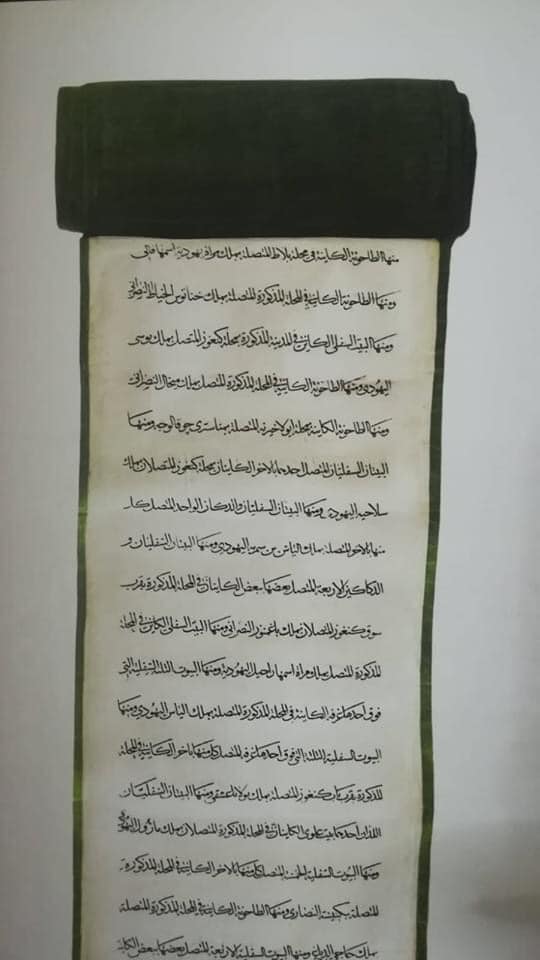 منها الطاحونة الكاينة في محلة بلاط المتصلة بملك مراة يهودية اسمها قالى
ومنها الطاحونة الكاينة في المحلة المذكورة المتصلة بملك الخياط النصراني
ومنها البيت السفلى الكاين في المدينة المذكورة بمحلة كنغوز المتصل بملك موسى
اليهودى ومنها الطاحونة الكاينة في المحلة المذكورة المتصل بملك ميخال النصرانى
ومنها الطاحونة الكاينة بمحلة المتصلة ومنها
البيتان السفليتان المتصل احدهما بالاخر الكاينتان بمحلة كنغوز المتصلان بملك
اليهودى ومنها البيتان السفليتان والدكان الواحد المتصل كل
منها بالاخر المتصلة بملك الياس بن اليهودى ومنها البيتان السفليتان و
الدكاكين الاربعة المتصل بعضها ببعض الكاينتان في المحلة المذكورة بقرب
سوق كنغوز المتصلان بملك النصرانى ومنها البيت السفلى الكاين في المحلة
المذكورة المتصل بملك مراة اسمها راحيل اليهودية ومنها البيوت الثلثة السفلية التى
فوق احدها غرفة الكاينة في المحلة المذكورة المتصلة بملك الياس اليهودى ومنها
البيوت السفلية الثلثة التى فوق احدها غرفة المتصل كل منها باخر الكاينة في المحلة
المذكورة بقرب باب كنغوز المتصلة بملك ومنها البيتان السفليتان
اللذان احدهما بيت علوى الكاينتان في المحلة المذكورة المتصلان بملك اليهودى
ومنها البيوت السفلية الخمسة المتصل كل منها بالاخر الكاينة في المحلة المذكورة
المتصلة بكنيسة النصارى ومنها الطاحونة الكاينة في المحلة المذكورة المتصلة
بملك حاجى ومنها البيوت السفلية الاربعة المتصل بعضها ببعض الكاينة